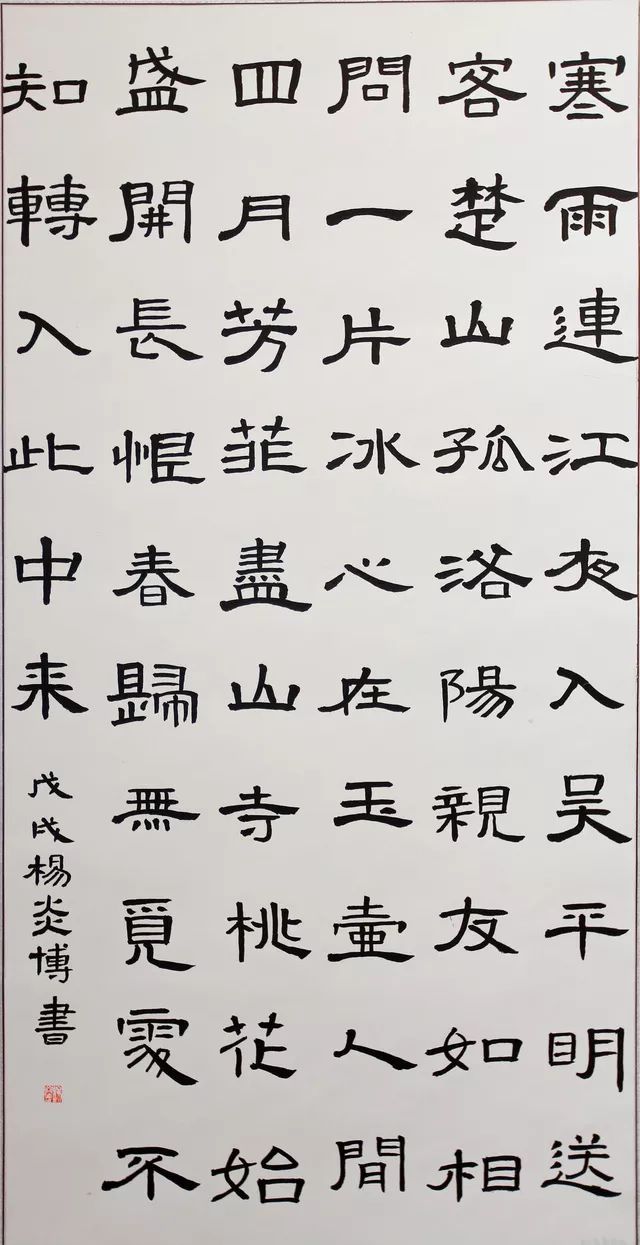 寒雨連江夜入吴平明送
客楚山孤洛陽親友如相
問一片冰心在玉壺人間
四月芳菲盡山寺桃花始
盛開長恨春歸無覓處不
知轉入此中来
戊戌楊炎博書